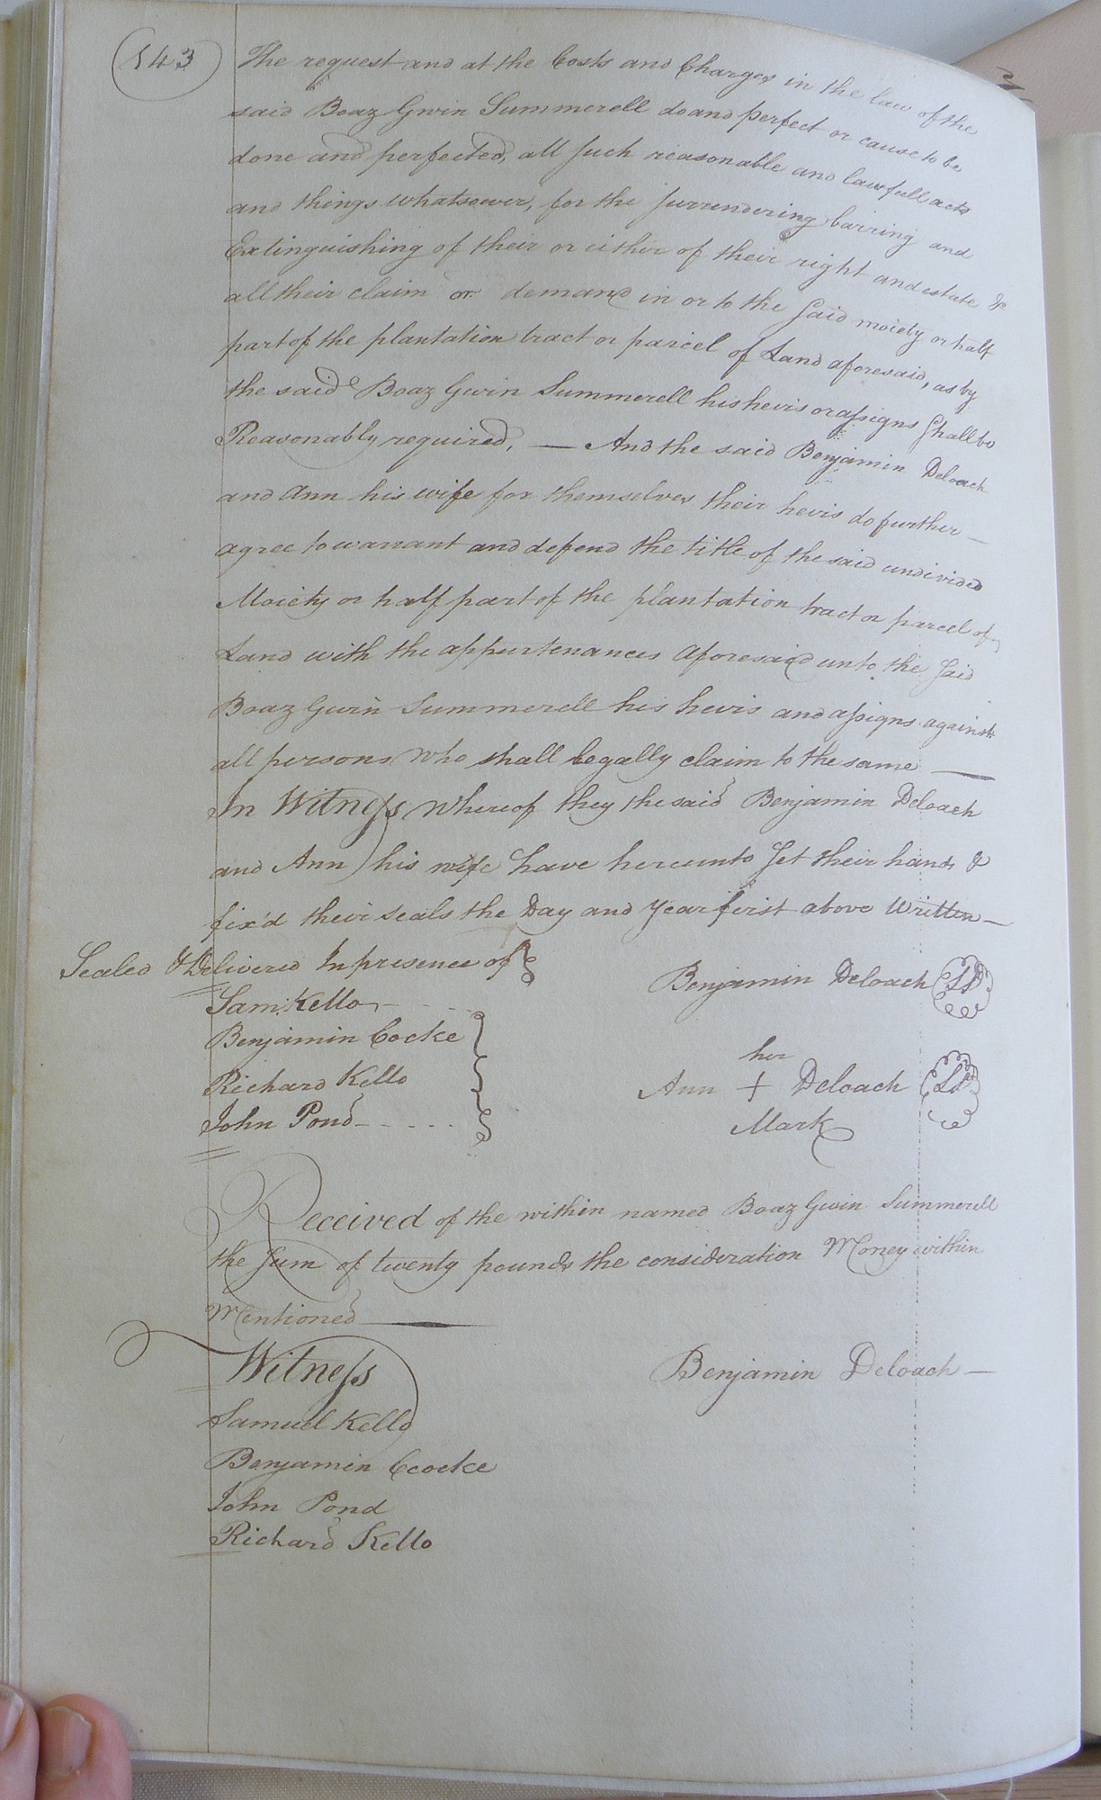 143
The request and at the Costs and Charges in the law of the
said Boaz Gwin Summerell do and perfect or cause to be
done and perfected, all such reasonable and lawfull acts
and things whatsoever, for the surrendering barring and
Extinguishing of their or either of their right and estate &
all their claim or demand in or to the said moiety or half
part of the plantation tract or parcel of Land aforesaid, as by
the said Boaz Gwin Summerell his heirs or assigns shall be
Reasonably required, — And the said Benjamin Deloach
and Ann his wife for themselves their heirs do further —
agree to warrant and defend the title of the said undivided
Moiety or half part of the plantation tract or parcel of
Land with the appurtenances aforesaid unto the said
Boaz Gwin Summerell his heirs and assigns against
all persons who shall legally claim to the same —
In Witness Whereof they the said Benjamin Deloach
and Ann his wife have hereunto set their hands &
fix'd their seals the Day and Year first above Written —
Sealed & Delivered In presence of
Sam: Kello
Benjamin Cocke
Richard Kello
John Pond
Benjamin Deloach LS
her
Ann + Deloach LS
Mark
Received of the within named Boaz Gwin Summerell
the sum of twenty pounds the consideration Money within
Mentioned —
Witness
Benjamin Deloach —
Samuel Kello
Benjamin Ccocke
John Pond
Richard Kello